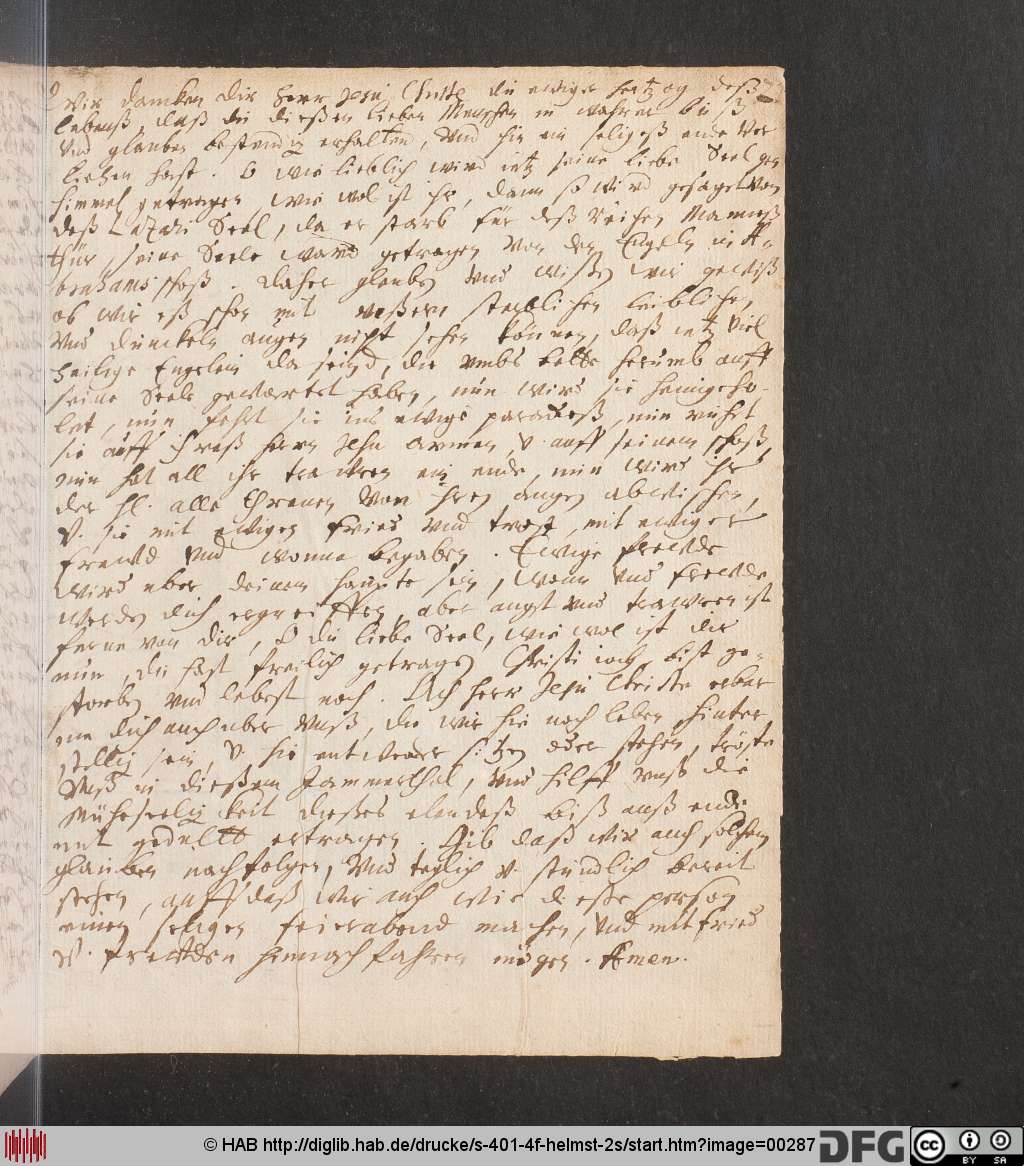 Wir dancken dir Herr Jesu Christe du ewiger hertzog deß
lebenß, daß du dießen lieben Menschen in wahrer buß
vnd glauben bestendig erhalten, vnd hie ein seligeß ende ver
liehen hast. O wie lieblich wird ietz seine liebe Seel gen
himmel getragen, wie wol ist ihr, dann so wird gesaget von
deß Lazari Seel, da er starb für deß Reichen Manneß
thür, seine Seele ward getragen von den Engeln in A-
brahams schoß. Daher glauben vnd wissen wir gewiß
ob wir eß schon mit vnßern sterblichen leiblichen
vnd dunckeln augen nicht sehen können, daß ietz viel
heilige Engelein da seind, die vmbs bette herumb auff
seine Seele gewartet haben, nun wird sie heimgeho-
let, nun fehrt sie ins ewige paradeß, nun ruhet
sie auff ihreß herrn Jesu armen, v. auff seinem schoß
nun hat all ihr trawren ein ende, nun wird ihr
der hl. alle threnen von ihren augen abwischen,
v. sie mit ewigen fried vnd trost, mit ewiger
frewd vnd wonne begaben. Ewige frewde
wird vber deinem haupte sein, wonn vnd frewde
werden dich ergreiffen, aber angst vnd trawren ist
ferne von dir, O du liebe Seel, wie wol ist dir
nun, du hast freilich getragen Christi ioch, bist ge-
storben vnd lebest noch. Ach herr Jesu Christe erbar
me dich auch vber vnß, die wir hie noch leben, hinter
stellig sein, v. hie entweder sitzen oder stehen, tröste
vnß in dießem Jammerthal, vnd hilff vnß die
mühseeligkeit dießes elendeß biß anß ende
mit gedultt ertragen. Gib daß wir auch solchem
glauben nachfolgen, vnd teglich v. stündlich bereit
stehen, auff daß wir auch wie diesse person
einen seligen feierabend machen, vnd mit fried
v. frewden hinnach fahren mögen. Amen.
© HAB http://diglib.hab.de/drucke/s-401-4f-helmst-2s/start.htm?image=00287
DFG
cc BY SA